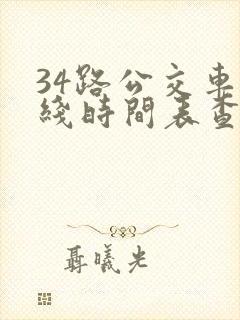 34路公交車
綫時間表查
聶曦光